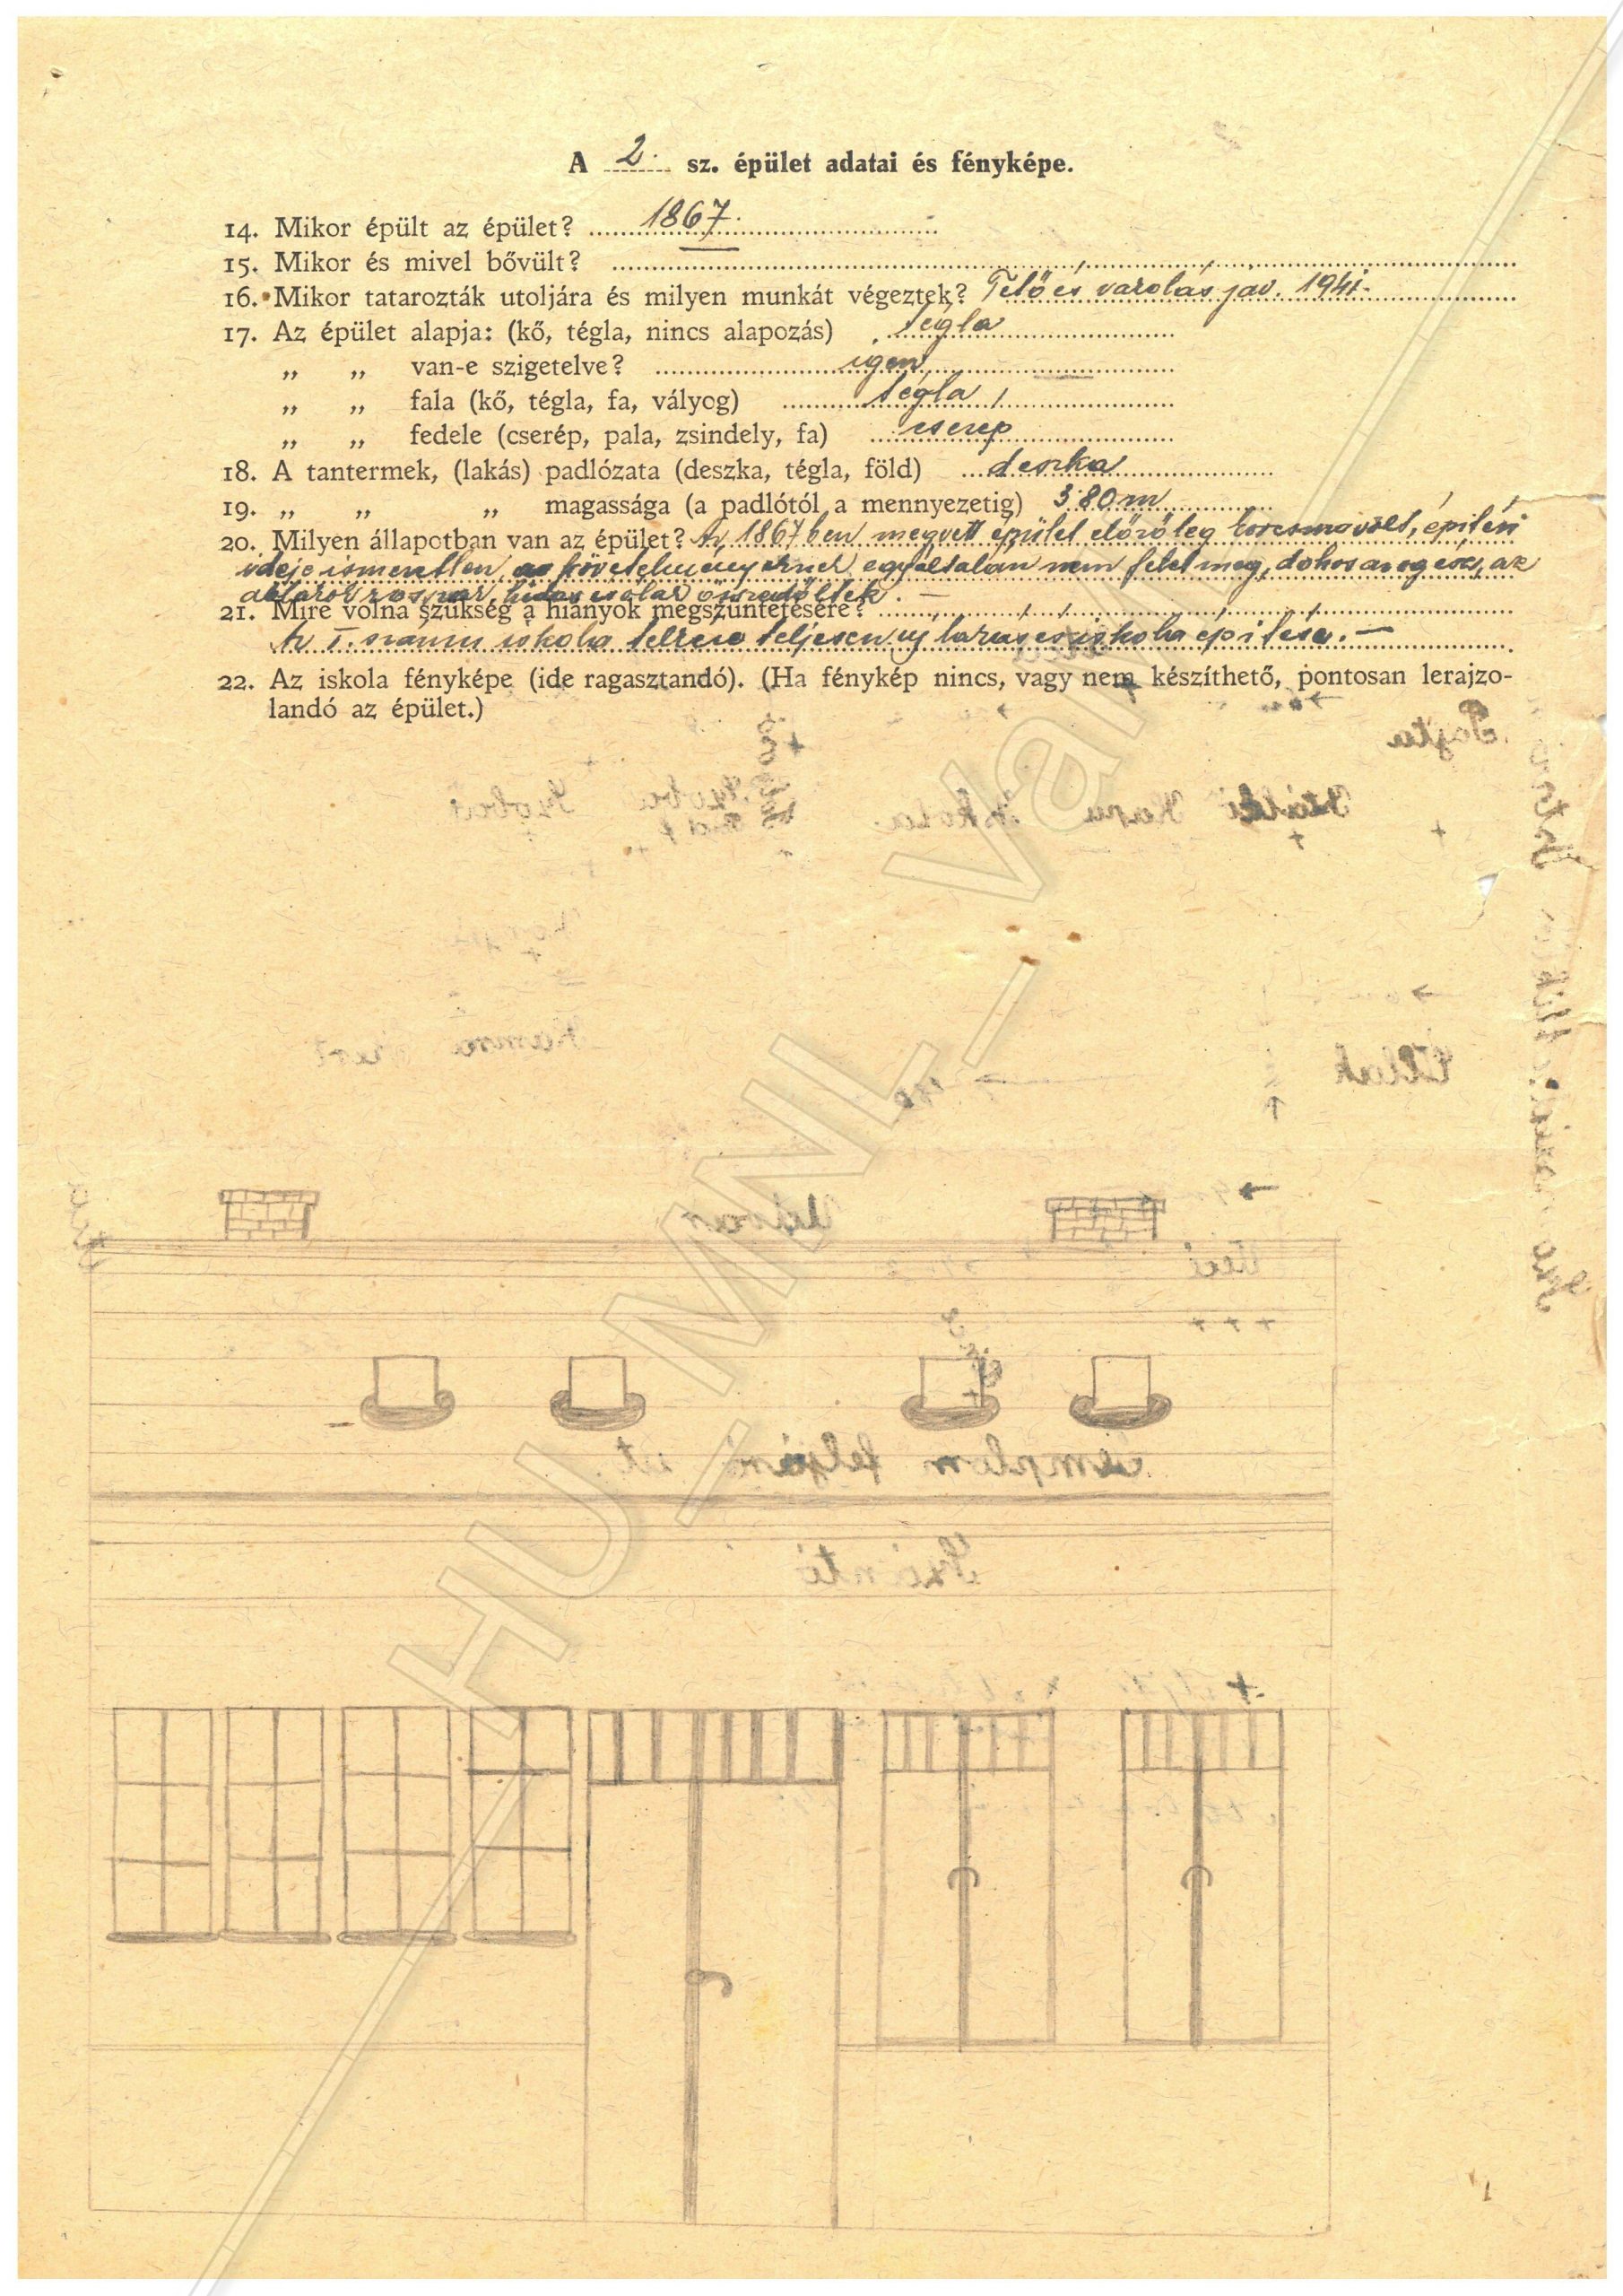 A 2. sz. épület adatai és fényképe.
14. Mikor épült az épület? 1867.
15. Mikor és mivel bővült?
16. Mikor tatarozták utoljára és milyen munkát végeztek? Tető és vakolás jav. 1941.
17. Az épület alapja: (kő, tégla, nincs alapozás) tégla
„ „ van-e szigetelve? igen
„ „ fala (kő, tégla, fa, vályog) tégla
„ „ fedele (cserép, pala, zsindely, fa) cserep
18. A tantermek, (lakás) padlózata (deszka, tégla, föld) deszka
19. „ „ „ magassága (a padlótól a mennyezetig) 3.80 m
20. Milyen állapotban van az épület? Az 1867 ben megvett épület előzőleg korcsma volt, építési
ideje ismeretlen, a követelményeknek egyáltalán nem felel meg, dohos az egész, az
21. Mire volna szükség a hiányok megszüntetésére?
Az I. számú iskola telkén teljesen uj lakás és iskola építése. —
22. Az iskola fényképe (ide ragasztandó). (Ha fénykép nincs, vagy nem készíthető, pontosan lerajzo-
landó az épület.)
Pajta
Szoba Szoba Iskola Kapu Istálló
Kamra
Ól
Udvar
Templom feljáró út.
Szántó
HU – MNL – VaML